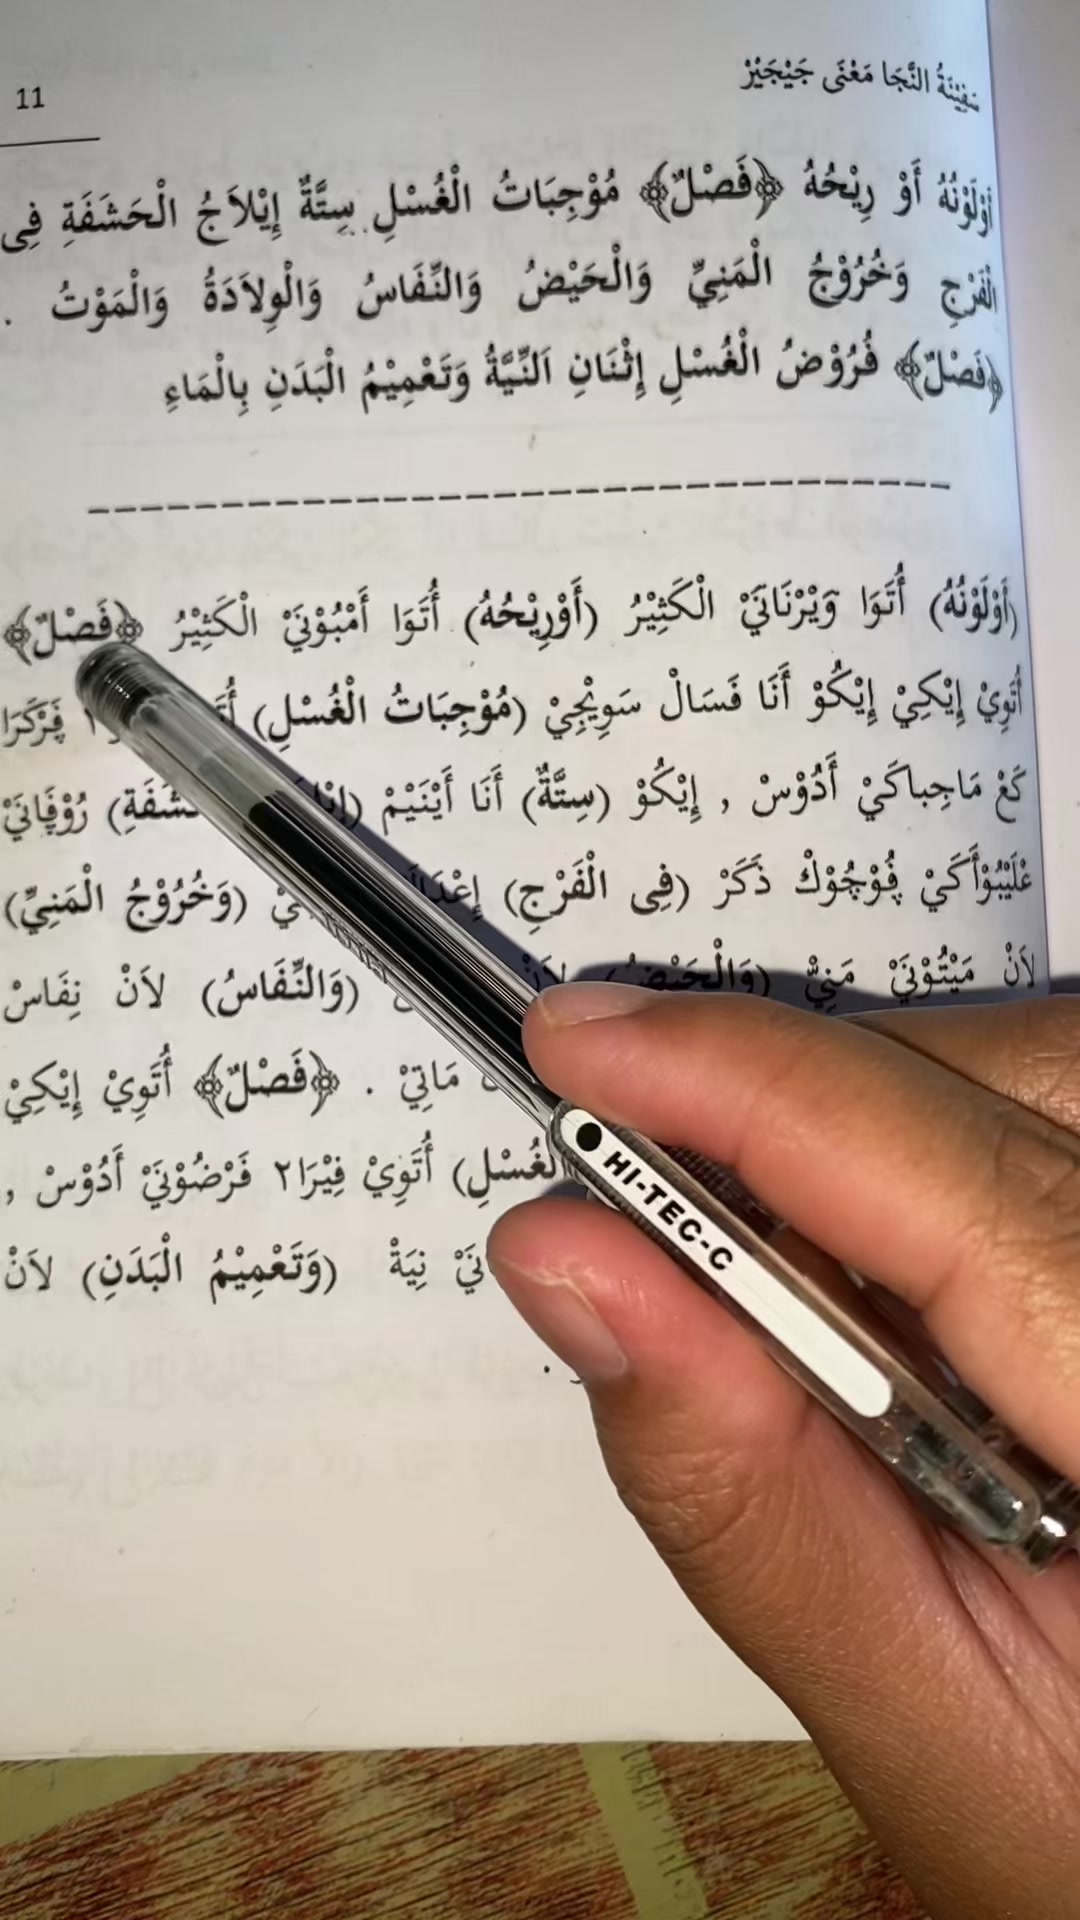 سَفِيْنَةُ النَّجَا مَعْنَى جَيْجَيْرْ
11
أَوْلَوْنُهُ أَوْ رِيْحُهُ ﴿فَصْلٌ﴾ مُوْجِبَاتُ الْغُسْلِ سِتَّةٌ إِيْلَاجُ الْحَشَفَةِ فِى
الْفَرْجِ وَخُرُوْجُ الْمَنِيِّ وَالْحَيْضُ وَالنِّفَاسُ وَالْوِلَادَةُ وَالْمَوْتُ .
﴿فَصْلٌ﴾ فُرُوْضُ الْغُسْلِ إِثْنَانِ اَلنِّيَّةُ وَتَعْمِيْمُ الْبَدَنِ بِالْمَاءِ
(أَوْلَوْنُهُ) أُتَوَا وَيْرْنَانَيْ الْكَثِيْرُ (أَوْرِيْحُهُ) أُتَوَا أَمْبُوْنَيْ الْكَثِيْرُ ﴿فَصْلٌ﴾
أُتَوِيْ إِيْكِيْ إِيْكُوْ أَنَا فَسَالْ سَوِيْجِيْ (مُوْجِبَاتُ الْغُسْلِ) فَرْكَرَا
كَڠْ مَاجِباكَيْ أَدُوْسْ , إِيْكُوْ (سِتَّةٌ) أَنَا أَيْنَيْمْ رُوْڤَانَيْ
ڠْلَيْبُوْأَكَيْ ڤُوْچُوْكْ ذَكَرْ (فِى الْفَرْجِ) (وَخُرُوْجُ الْمَنِيِّ)
لَانْ مَيْتُوْنَيْ مَنِيّْ (وَالْحَيْضُ) لَانْ (وَالنِّفَاسُ) لَانْ نِفَاسْ
مَاتِيْ . ﴿فَصْلٌ﴾ أُتَوِيْ إِيْكِيْ
الْغُسْلِ) أُتَوِيْ فِيْرَا٢ فَرْضُوْنَيْ أَدُوْسْ ,
نِيَةْ (وَتَعْمِيْمُ الْبَدَنِ) لَانْ
HI-TEC-C